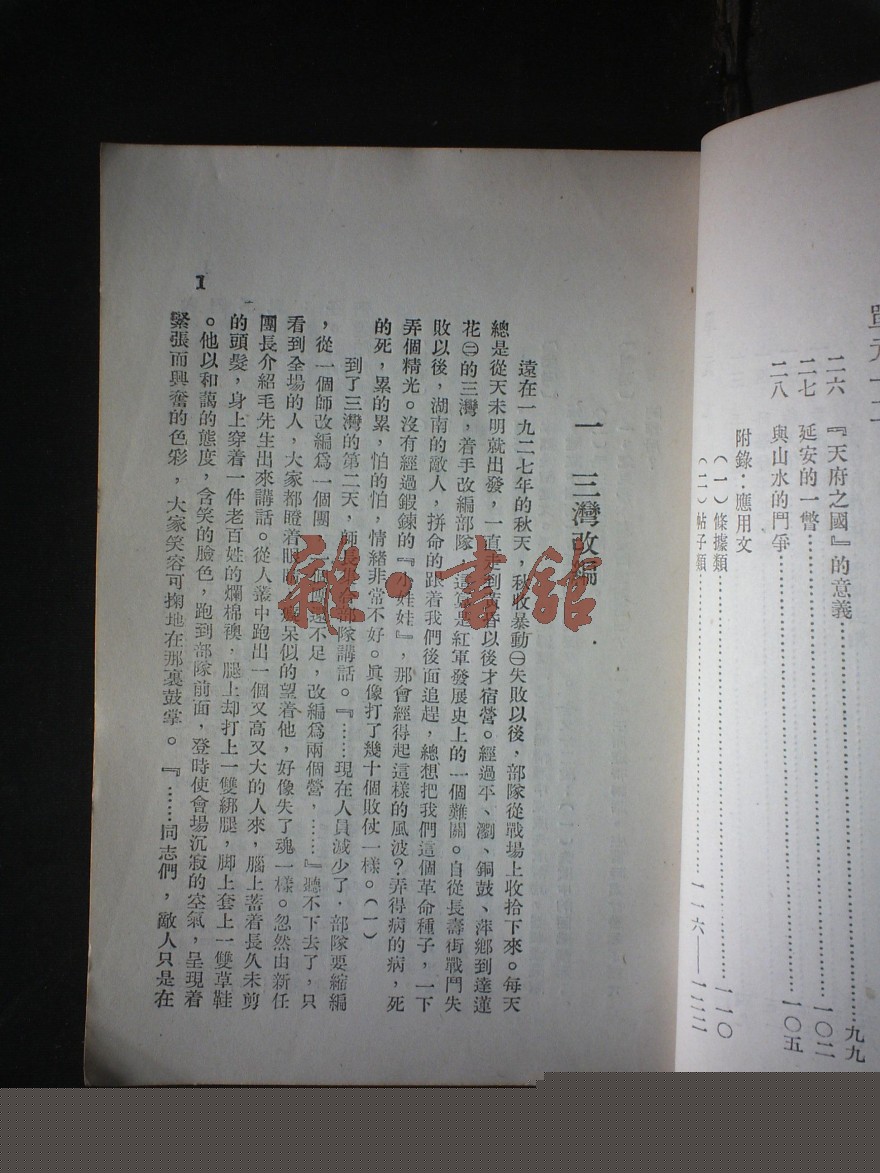 單元十二
二六 『天府之國』的意義……九九
二七 延安的一瞥……一〇二
二八 與山水的鬥爭……一〇五
附錄：應用文
（一）條據類……一一〇
（二）帖子類……一一六——一二二
一 三灣改編
遠在一九二七年的秋天，秋收暴動㊀失敗以後，部隊從戰場上收拾下來。每天
總是從天未明就出發，一直走到黃昏以後才宿營。經過平、瀏、銅鼓、萍鄉到達蓮
花㊁的三灣，着手改編部隊，這算是紅軍發展史上的一個難關。自從長壽街戰鬥失
敗以後，湖南的敵人，拼命的跟着我們後面追趕，總想把我們這個革命種子，一下
弄個精光。沒有經過鍛鍊的『小娃娃』，那會經得起這樣的風波？弄得病的病，死
的死，累的累，怕的怕，情緒非常不好。眞像打了幾十個敗仗一樣。（一）
到了三灣的第二天，師長 部隊講話。『……現在人員減少了，部隊要縮編
，從一個師改編爲一個團，一個團還不足，改編爲兩個營，……』聽不下去了，只
看到全場的人，大家都瞪着眼睛，癡呆似的望着他，好像失了魂一樣。忽然由新任
團長介紹毛先生出來講話。從人叢中跑出一個又高又大的人來，腦上蓄着長久未剪
的頭髮，身上穿着一件老百姓的爛棉襖，腿上却打上一雙綁腿，脚上套上一雙草鞋
。他以和藹的態度，含笑的臉色，跑到部隊前面，登時使會場沉寂的空氣，呈現着
緊張而興奮的色彩，大家笑容可掬地在那裏鼓掌。『……同志們，敵人只是在
1
雜·書館